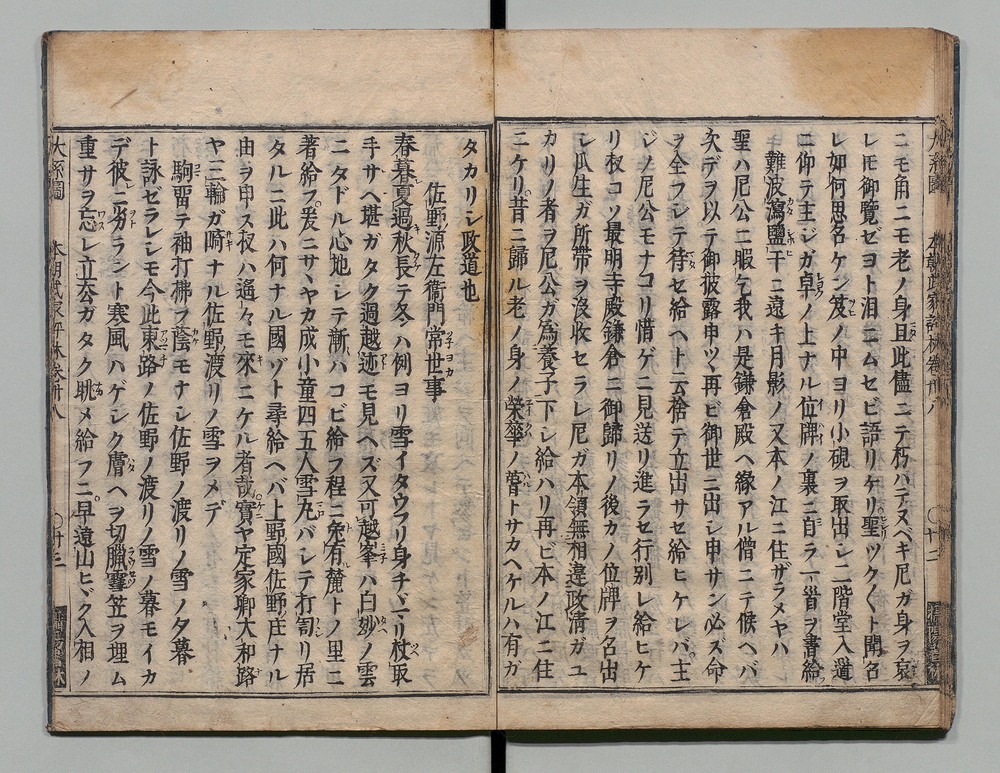 ニモ角ニモ老ノ身且此儘ニテ朽ハテヌベキ尼ガ身ヲ哀
レモ御覽ゼヨト泪ニムセビ語リケリ聖ツクヾト聞名
レ如何思名ケン笈ノ中ヨリ小硯ヲ取出シ二階堂入道
ニ仰テ主ジガ卓ノ上ナル位牌ノ裏ニ自ラ一首ヲ書給
難波瀉鹽干ニ遠キ月影ノ又本ノ江ニ住ザラメヤハ
聖ハ尼公ニ暇乞我ハ是鎌倉殿ヘ緣アル僧ニテ候ヘバ
次デヲ以テ御披露申ツヽ再ビ御世ニ出シ申サン必ズ命
ヲ全フシテ待セ給ヘト云捨テ立出サセ給ヒケレバ主
ジノ尼公モナコリ惜ゲニ見送リ進ラセ行別レ給ヒケ
リ扨コソ最明寺殿鎌倉ニ御歸リノ後カノ位牌ヲ名出
シ瓜生ガ所帶ヲ沒收セラレ尼ガ本領無相違政清ガユ
カリノ者ヲ尼公ガ爲養子下シ給ハリ再ビ本ノ江ニ住
ニケリ昔ニ歸ル老ノ身ノ榮華ノ トサカヘケルハ有ガ
大系圖 本朝武家評林卷卅八 〇十二
タカリシ政道也
佐野源左衞門常世事
春暮夏過秋長テ冬ハ例ヨリ雪イタウフリ身チヾニリ杖取
手サヘ堪ガタク過越迹モ見ヘズ又可越峯ハ白妙ノ雲
ニタドル心地シテ漸ハコビ給フ程ニ兔有麓トノ里ニ
著給フ爰ニサヽヤカ成小童四五人雪丸バシテ打訇リ居
タルニ此ハ何ナル國ゾト尋給ヘバ上野國佐野庄ナル
由ヲ申ス扨ハ遙々モ來ニケル者哉實ヤ定家卿大和路
ヤ三輪ガ崎ナル佐野渡リノ雪ヲメデ
駒留テ袖打拂フ蔭モナシ佐野ノ渡リノ雪ノ夕暮
ト詠ゼラレシモ今此東路ノ佐野ノ渡リノ雪ノ暮モイカ
デ彼ニ劣ラント寒風ハゲシク膚ヘヲ切臘雪笠ヲ埋ム
重サヲ忘レ立去ガタク眺メ給フニ早遠山ヒヾク入相ノ
大系圖 本朝武家評林卷卅八 〇十三